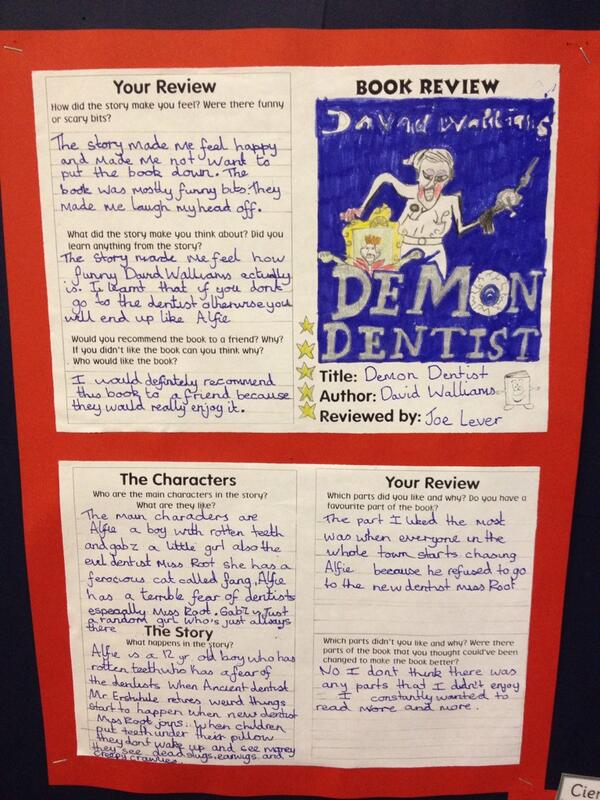 Your Review
How did the story make you feel? Were there funny
or scary bits?
The story made me feel happy
and made me not want to
put the book down. The
book was mostly funny bits. They
made me laugh my head off.
What did the story make you think about? Did you
learn anything from the story?
The story made me feel how
funny David Walliams actually
is. I learnt that if you don't
go to the dentist otherwise you
will end up like Alfie
Would you recommend the book to a friend? Why?
If you didn't like the book can you think why?
Who would like the book?
I would definitely recommend
this book to a friend because
they would really enjoy it.
BOOK REVIEW
David Walliams
DEMON
DENTIST
Title: Demon Dentist
Author: David Walliams
Reviewed by: Joe Lever
The Characters
Who are the main characters in the story?
What are they like?
The main characters are
Alfie a boy with rotten teeth
and gabz a little girl also the
evil dentist Miss Root she has a
ferocious cat called fang. Alfie
has a terrible fear of dentists
especially Miss Root. Gabz is Just
a random girl who's just always
there
The Story
What happens in the story?
Alfie is a 12 yr old boy who has
rotten teeth who has a fear of
the dentists when Ancient dentist
Mr Erstwhile retires weird things
start to happen when new dentist
Miss Root joyns. When children
put teeth under their pillow
they dont wake up and see money
they see dead slugs, earwigs and
creepy crawlies.
Your Review
Which parts did you like and why? Do you have a
favourite part of the book?
The part I liked the most
was when everyone in the
whole town starts chasing
Alfie because he refused to go
to the new dentist miss Root
Which parts didn't you like and why? Were there
parts of the book that you thought could've been
changed to make the book better?
No I dont think there was
any parts that I didn't enjoy
I constantly wanted to
read more and more.
Cier